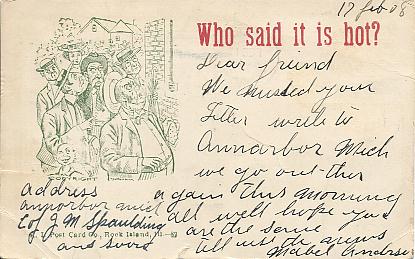 17 Feb 08
Who said it is hot?
Dear friend
We missed your
Letter write to
Annarbor Mich
we go out this
again this morning
all well hope you
are the same
tell us the
Mabel
COPYRIGHT
address
annarbor mich
C of J. M. Spaulding
and Sons
Post Card Co., Rock Island, Ill.